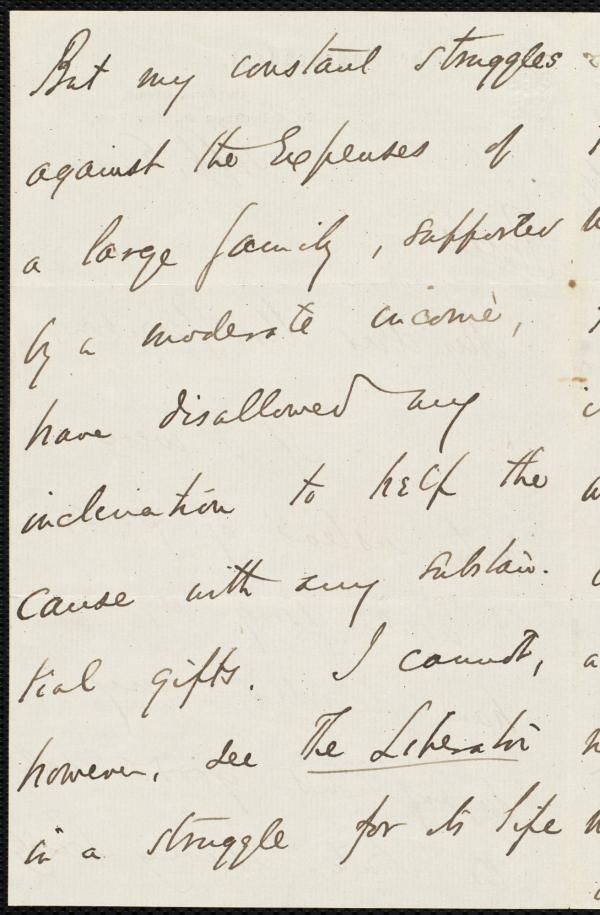 But my constant struggles
against the Expenses of
a large family, supported
by a moderate income,
have disallowed any
inclination to help the
cause with any substan-
tial gifts. I cannot,
however, see The Liberator
in a struggle for its life